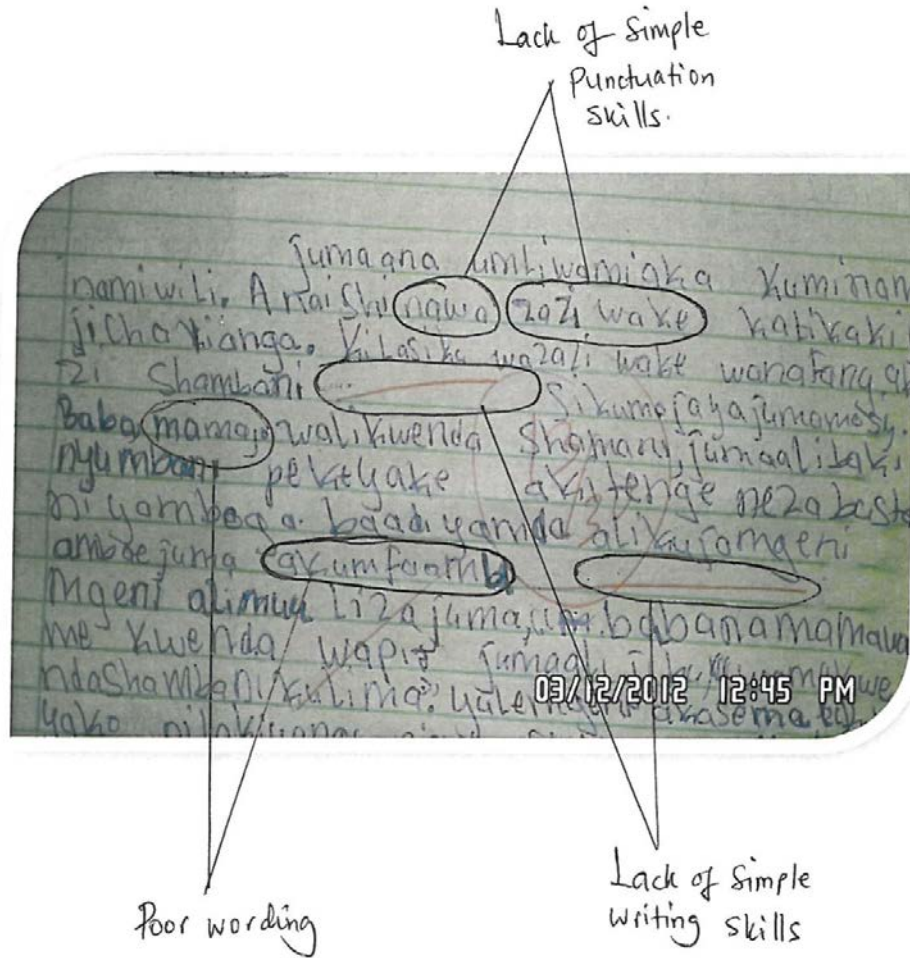 Lack of Simple
Punctuation
skills.
jumaana umliwamiaka kuminam
namiwili. Anaishi nawa zazi wake katikaki
jichaKianga. Kilasiku wazali wake wanafang
zi Shambani
Sikumojayajumamosy.
Baba, mamaja walikwenda Shamani, jumaalibaki
nyumbani pekeyake akitenge nezabasta
niyamboga. baadiyamda alikujamgeni
ambae juma akumfaamu
Mgeni alimuu lizajuma, babanamamawa
me Kwenda wapi? jumaaki
ndaShambanikulima." yulemgeni akasema
03/12/2012 12:45 PM
yako
Poor wording
Lack of Simple
writing skills